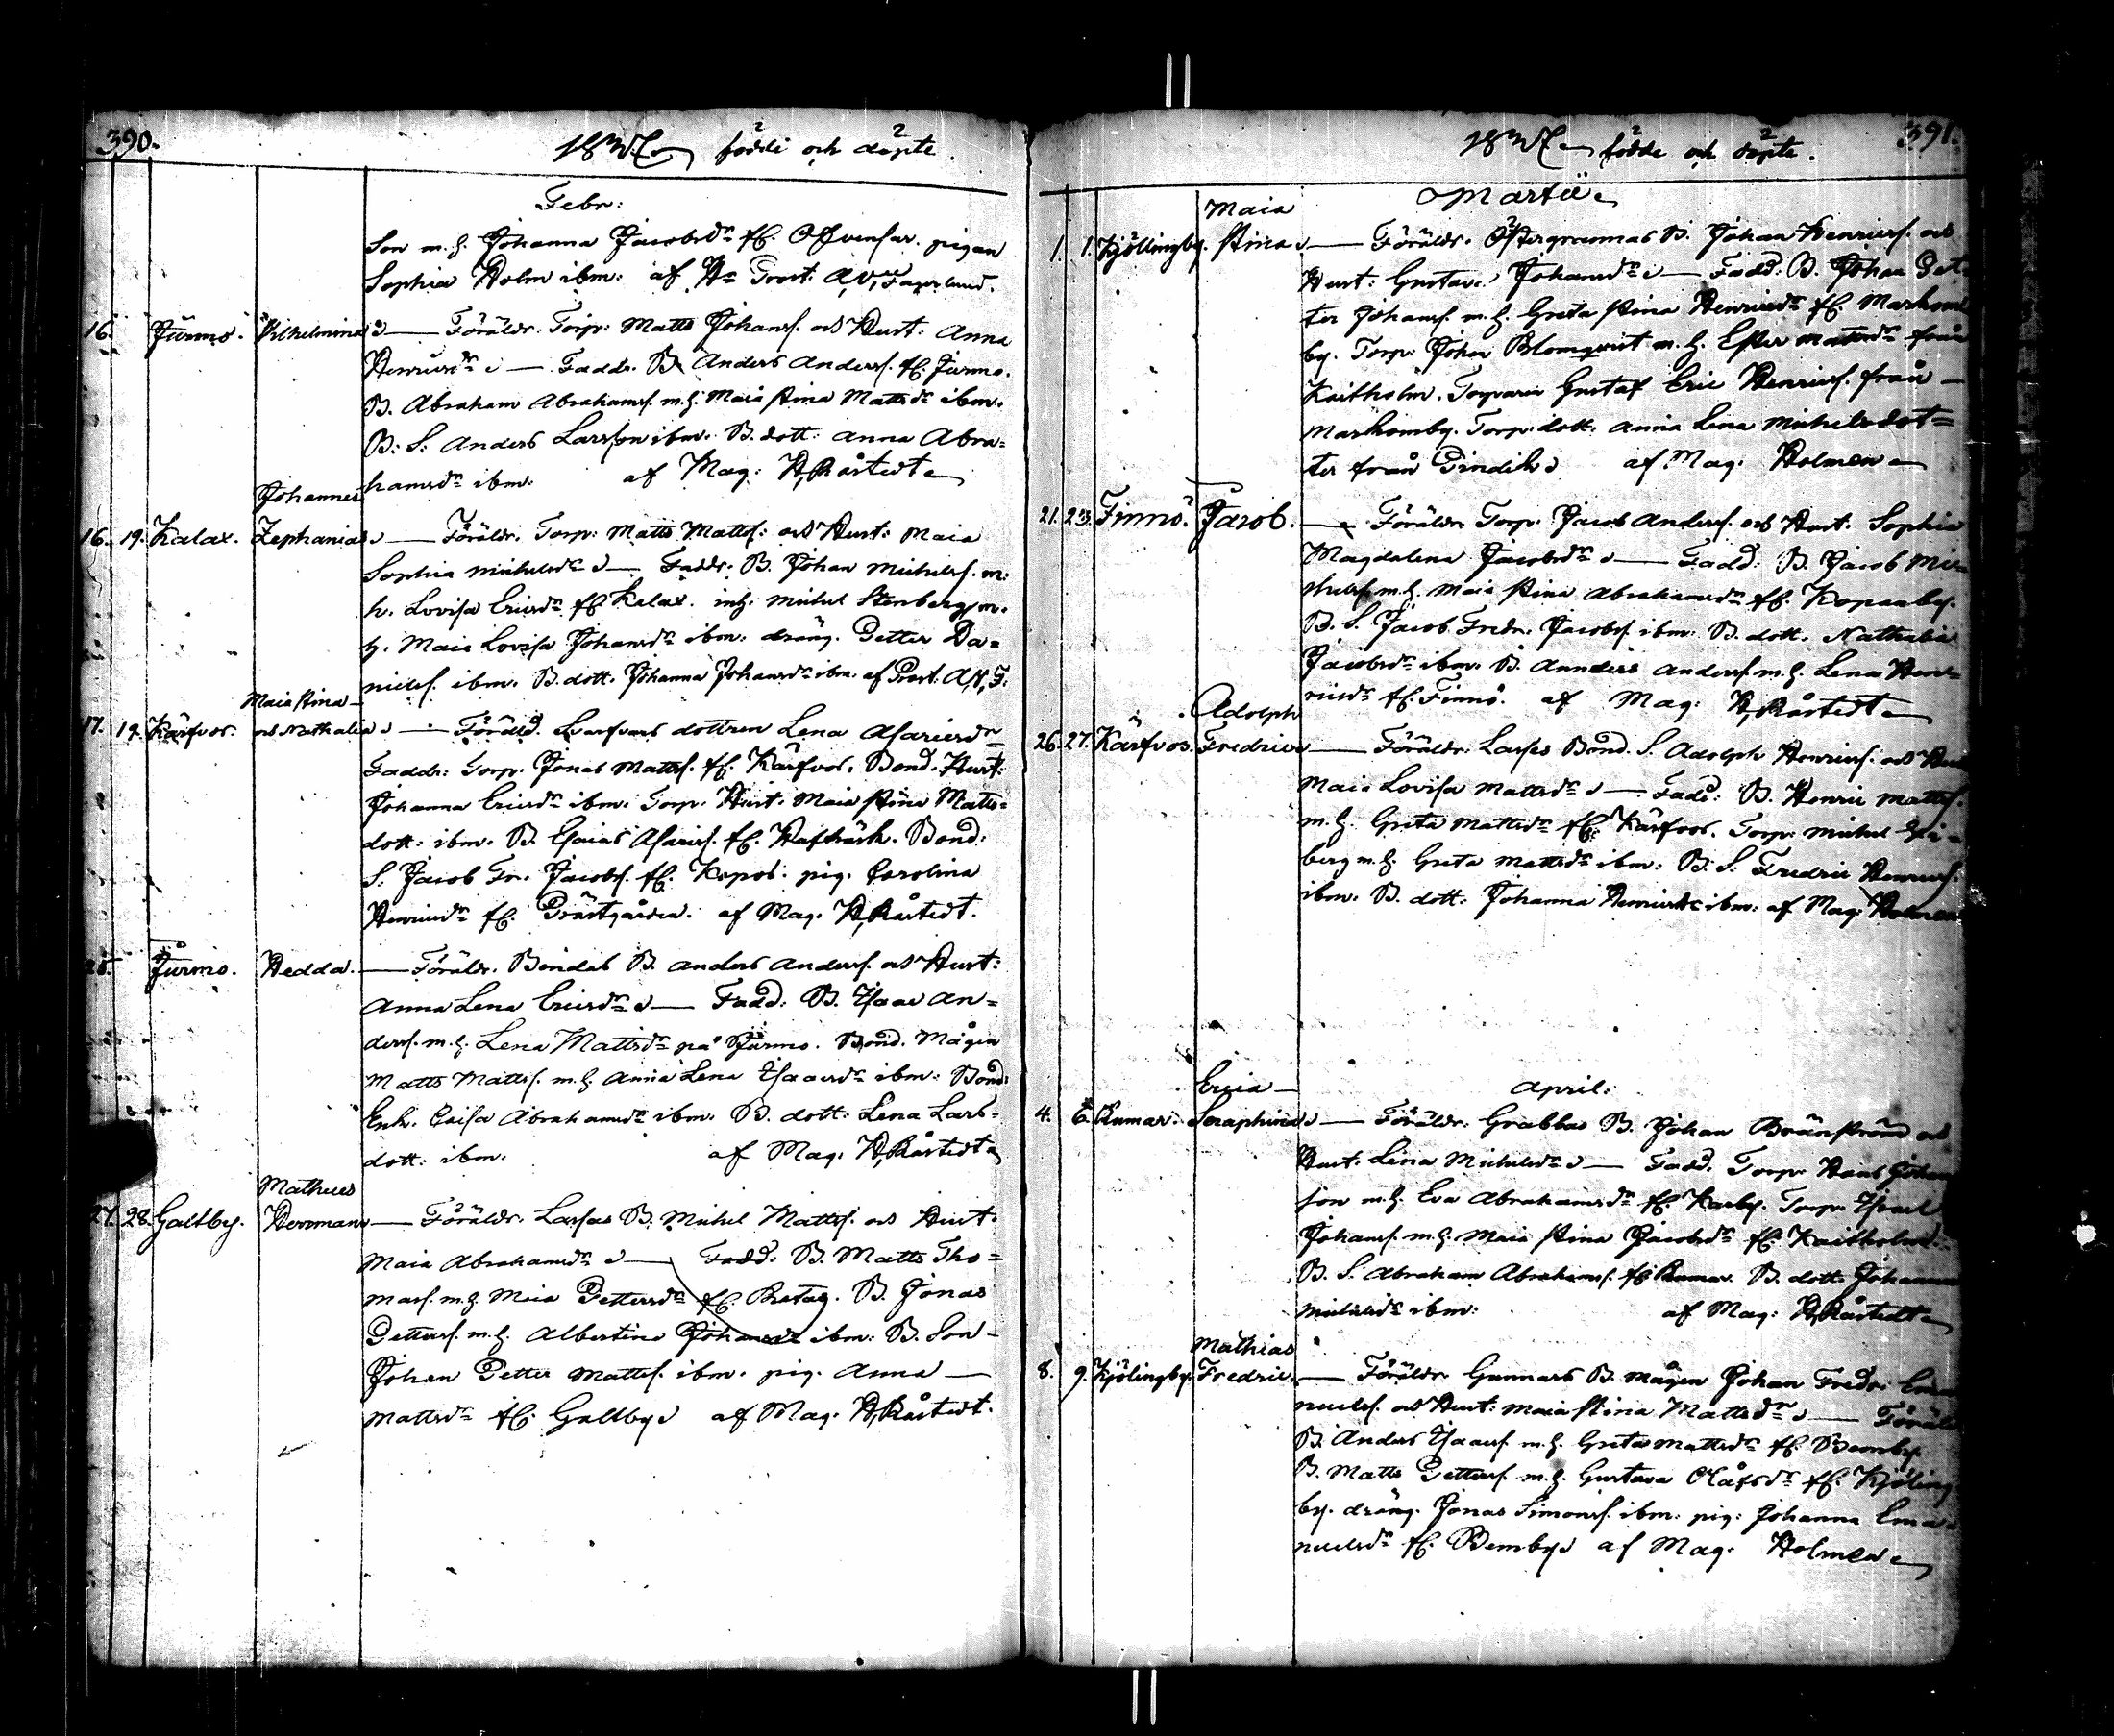 390.
födde och döpte.
Febr:
Son m. h. Johanna Jacobsdr fr. Offvensar. pigan
Sophia Holm ibm: af Hr Prost. A, V, Fagerlund.
16. Jurmo. Vilhelmina — Föräldr. Torp: Matts Johanss. och Hust: Anna
Henricsdr — Faddr. B. Anders Anderss. fr. Jurmo.
B. Abraham Abrahamss. m. h. Maia Stina Mattsdr ibm.
B: S: Anders Larsson ibm. B. dott: Anna Abra=
hamsdr ibm: af Mag: H, Råstedt
Johannes
16. 19. Kalax. Zephanias — Föräldr. Torp: Matts Mattss: och Hust: Maia
Sophia Michelsdr — Faddr. B. Johan Michelss. m:
h. Lovisa Ericsdr fr Kalax. inh. Michel Stenberg m.
h. Maia Lovisa Johansdr ibm: dräng. Petter Da=
nielss. ibm. B. dott. Johanna Johansdr ibm. af Prost. A, V, F.
Maia Stina —
17. 19. Kärfvos. och Nathalia — Föräld. dottren Lena Asariesdr
Faddr: Torp. Jonas Mattss. fr. Kärfvos. Bond. Hust:
Johanna Ericsdr ibm: Torp. Hust. Maia Stina Matts=
dott: ibm. B. Esaias Asariess. fr. Hafträsk. Bond:
S. Jacob Fr. Jacobss. fr. Kopos. pig. Carolina
Henricsdr fr. Prästgården. af Mag. H, Råstedt.
Jurmo. Hedda. — Föräldr. Bondas B. Anders Anderss. och Hust:
Anna Lena Ericsdr — Fadd: B. Isaac An=
derss. m. h. Lena Mattsdr på Jurmo. Bond. Mågen
Matts Mattss. m. h. Anna Lena Isaacsdr ibm: Bond:
Enk. Caisa Abrahamsdr ibm. B. dott: Lena Lars=
dott: ibm. af Mag. H, Råstedt
Matheus
27. 28. Galtby. Herrman — Föräldr. Larsas B. Michel Mattss. och Hust.
Maia Abrahamsdr — Fadd. B. Matts Tho=
mass. m. h. Maia Pettersdr fr. B. Jonas
Petterss. m. h. Albertina Johansdr ibm: B. Son —
Johan Petter Mattss. ibm. pig. Anna —
Mattsdr fr. Galtby af Mag. H, Råstedt.
födde och döpte. 391.
Martii
Maia
1. 1. Kjöllingby. Stina — Föräldr. Östergrannas B. Johan Henricss. och
Hust: Gustava Johansdr — Fadd. B. Johan Pet=
ter Johanss. m. h. Greta Stina Henricsdr fr. Markom
by. Torp: Johan Blomqvist m. h. Ester Mattsdr från
Kaitholm. Torparen Gustaf Eric Henricss. från —
Markomby. Torp. dott: Anna Lena Michelsdot=
ter från af Mag. Holmen
21. 23. Finnö. Jacob. — Föräldr. Torp. Jacob Anderss. och Hust. Sophia
Magdalena Jacobsdr — Fadd: B. Jacob Mi
chelss. m. h. Maia Stina Abrahamsdr fr. Kopanby.
B. S. Jacob Fredr. Jacobss. ibm: B. dott. Nathalia
Jacobsdr ibm. B. Annders Anderss. m. h. Lena Hen=
ricsdr fr. Finnö. af Mag. H, Råstedt
Adolph
26. 27. Kärfvos. Fredric — Föräldr: Larses Bond. S. Adolph Henricss. och Hust
Maia Lovisa Mattsdr — Fadd: B. Henric Mattss.
m. h. Greta Mattsdr fr. Kärfvos. Torp. Michel
berg m. h. Greta Mattsdr ibm: B. S: Fredric Henricss:
ibm. B. dott. Johanna Henricsdr ibm: af Mag: Holmen
April:
Erica —
4. 6. Rumar. Seraphina — Föräldr: Grabbas B. Johan Brännström och
Hust: Lena Michelsdr — Fadd. Torp. Johans
son m. h. Eva Abrahamsdr fr. Korby. Torp. Israel
Johanss. m. h. Maia Stina Jacobsdr fr. Kaitholm.
B. S. Abraham Abrahamss. fr. Rumar. B. dott. Johanna
Michelsdr ibm: af Mag: H, Råstedt
Mathias
8. 9. Kjölingby. Fredric. — Föräldr. Gunnars B. mågen Johan Fredr. Ema
nuelss. och Hust: Maia Stina Mattsdr — Föräld
B. Anders Isaacss. m. h. Greta Mattsdr fr. Bemby.
B. Matts Petterss. m. h. Gustava Olåfsdr fr. Kjöling
by. dräng. Jonas Simonss. ibm: pig: Johanna Ema=
nuelsdr fr. Bemby af Mag. Holmen